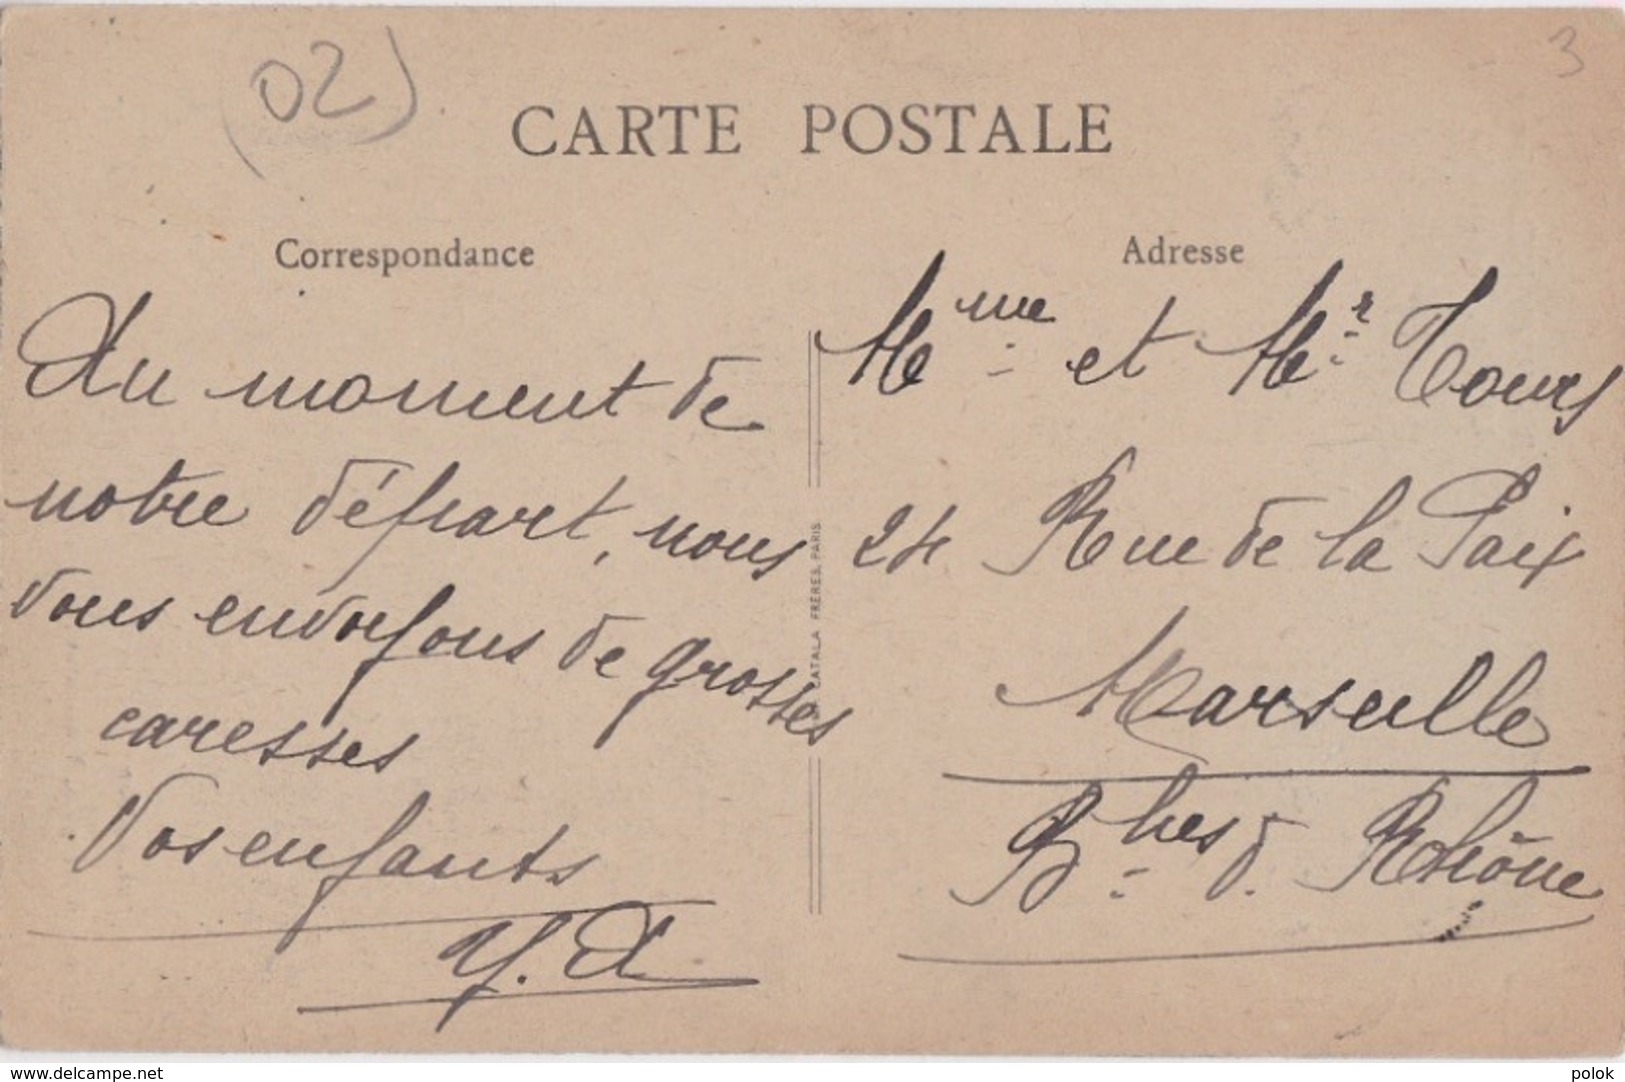 (02)
3
CARTE POSTALE
Correspondance
Au moment de
notre départ, nous
vous envoyons de grosses
caresses
Vos enfants
Y. A
CATALA FRERES, PARIS
Adresse
Mme et Mr Tours
24 Rue de la Paix
Marseille
Bhes d. Rhône
www.delcampe.net
polok